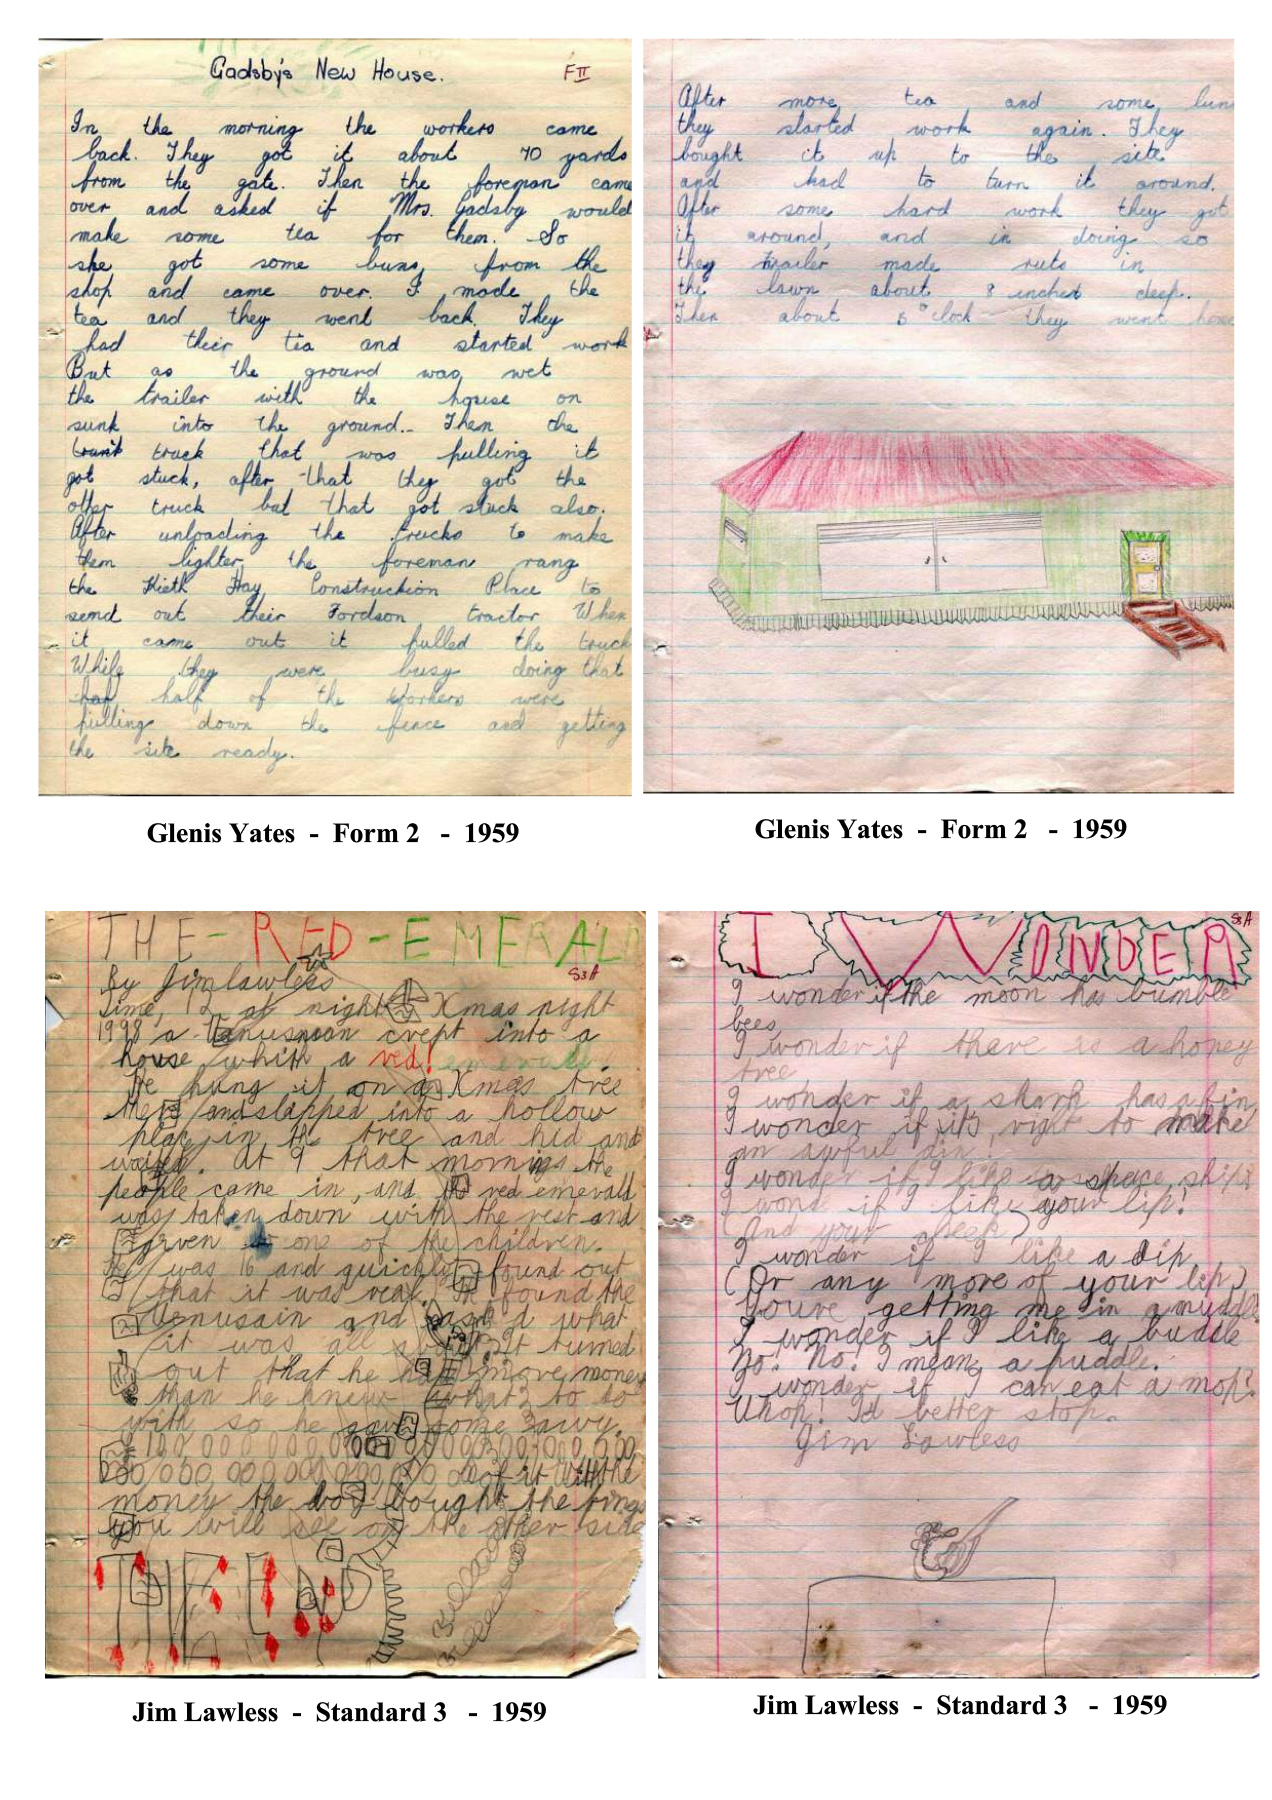 Gadsby's New House.
F II
In the morning the workers came
back. They got it about 70 yards
from the gate. Then the foreman came
over and asked if Mrs. Gadsby would
make some tea for them. So
she got some buns, from the
shop and came over. I made the
tea and they went back. They
had their tea and started work
But as the ground was wet
the trailer with the house on
sunk into the ground. Then the
truck that was pulling it
got stuck, after that they got the
other truck but that got stuck also.
After unloading the trucks to make
them lighter the foreman rang
the Kieth Hay Construction Place to
send out their Fordson tractor When
it came out it pulled the truck
While they were busy doing that
haf half of the workers were
pulling down the fence and getting
the site ready.
After more tea and some lun
they started work again. They
bought it up to the site
and had to turn it around.
After some hard work they got
it around, and in doing so
they trailer made ruts in
the lawn about 8 inches deep.
Then about 5 o'clock they went home
Glenis Yates - Form 2 - 1959
Glenis Yates - Form 2 - 1959
THE-RED-EMERALD
S3A
By Jim lawless
Time, 12 at night Xmas night
1998 a Vanusian crept into a
house whith a red! emerald!
He hung it on a Xmas tree
there and slipped into a hollow
plac in the tree and hid and
waited. At 9 that morning the
people came in, and the red emerald
was taken down with the rest and
given to one of the children.
He was 16 and quickly found out
that it was real. He found the
Venusain and ask'd what
it was all about. It turned
out that he had more money
than he knew what to do
with so he gave some away.
of it with the
money the boy bought the tings
you will see on the other side
THE END
I WONDER
S3A
I wonder if the moon has bumble
bees,
I wonder if there is a honey
tree
I wonder if a shark has a fin
I wonder if it's right to make
an awful din!
I wonder if I like a space ship
I wond if I like your lip!
(And your cheek)
I wonder if I like a dip
(Or any more of your lip)
You're getting me in a muddle
I wonder if I like a buddle
No! No! I mean a puddle.
I wonder if I can eat a mop?
Whop! I'd better stop.
Jim Lawless
Jim Lawless - Standard 3 - 1959
Jim Lawless - Standard 3 - 1959